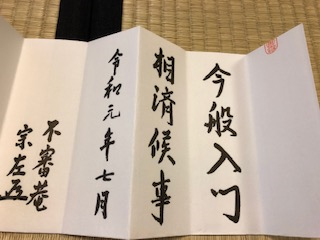 今般入门
相済候事
令和元年七月
不審菴
宗左